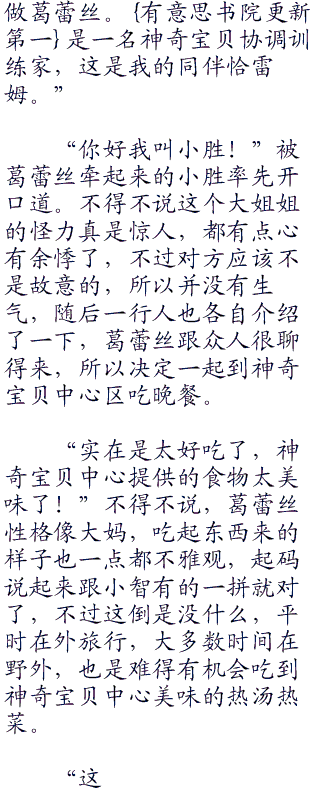 做葛蕾丝。{有意思书院更新
第一}是一名神奇宝贝协调训
练家，这是我的同伴恰雷
姆。”
“你好我叫小胜！”被
葛蕾丝牵起来的小胜率先开
口道。不得不说这个大姐姐
的怪力真是惊人，都有点心
有余悸了，不过对方应该不
是故意的，所以并没有生
气，随后一行人也各自介绍
了一下，葛蕾丝跟众人很聊
得来，所以决定一起到神奇
宝贝中心区吃晚餐。
“实在是太好吃了，神
奇宝贝中心提供的食物太美
味了！”不得不说，葛蕾丝
性格像大妈，吃起东西来的
样子也一点都不雅观，起码
说起来跟小智有的一拼就对
了，不过这倒是没什么，平
时在外旅行，大多数时间在
野外，也是难得有机会吃到
神奇宝贝中心美味的热汤热
菜。
“这